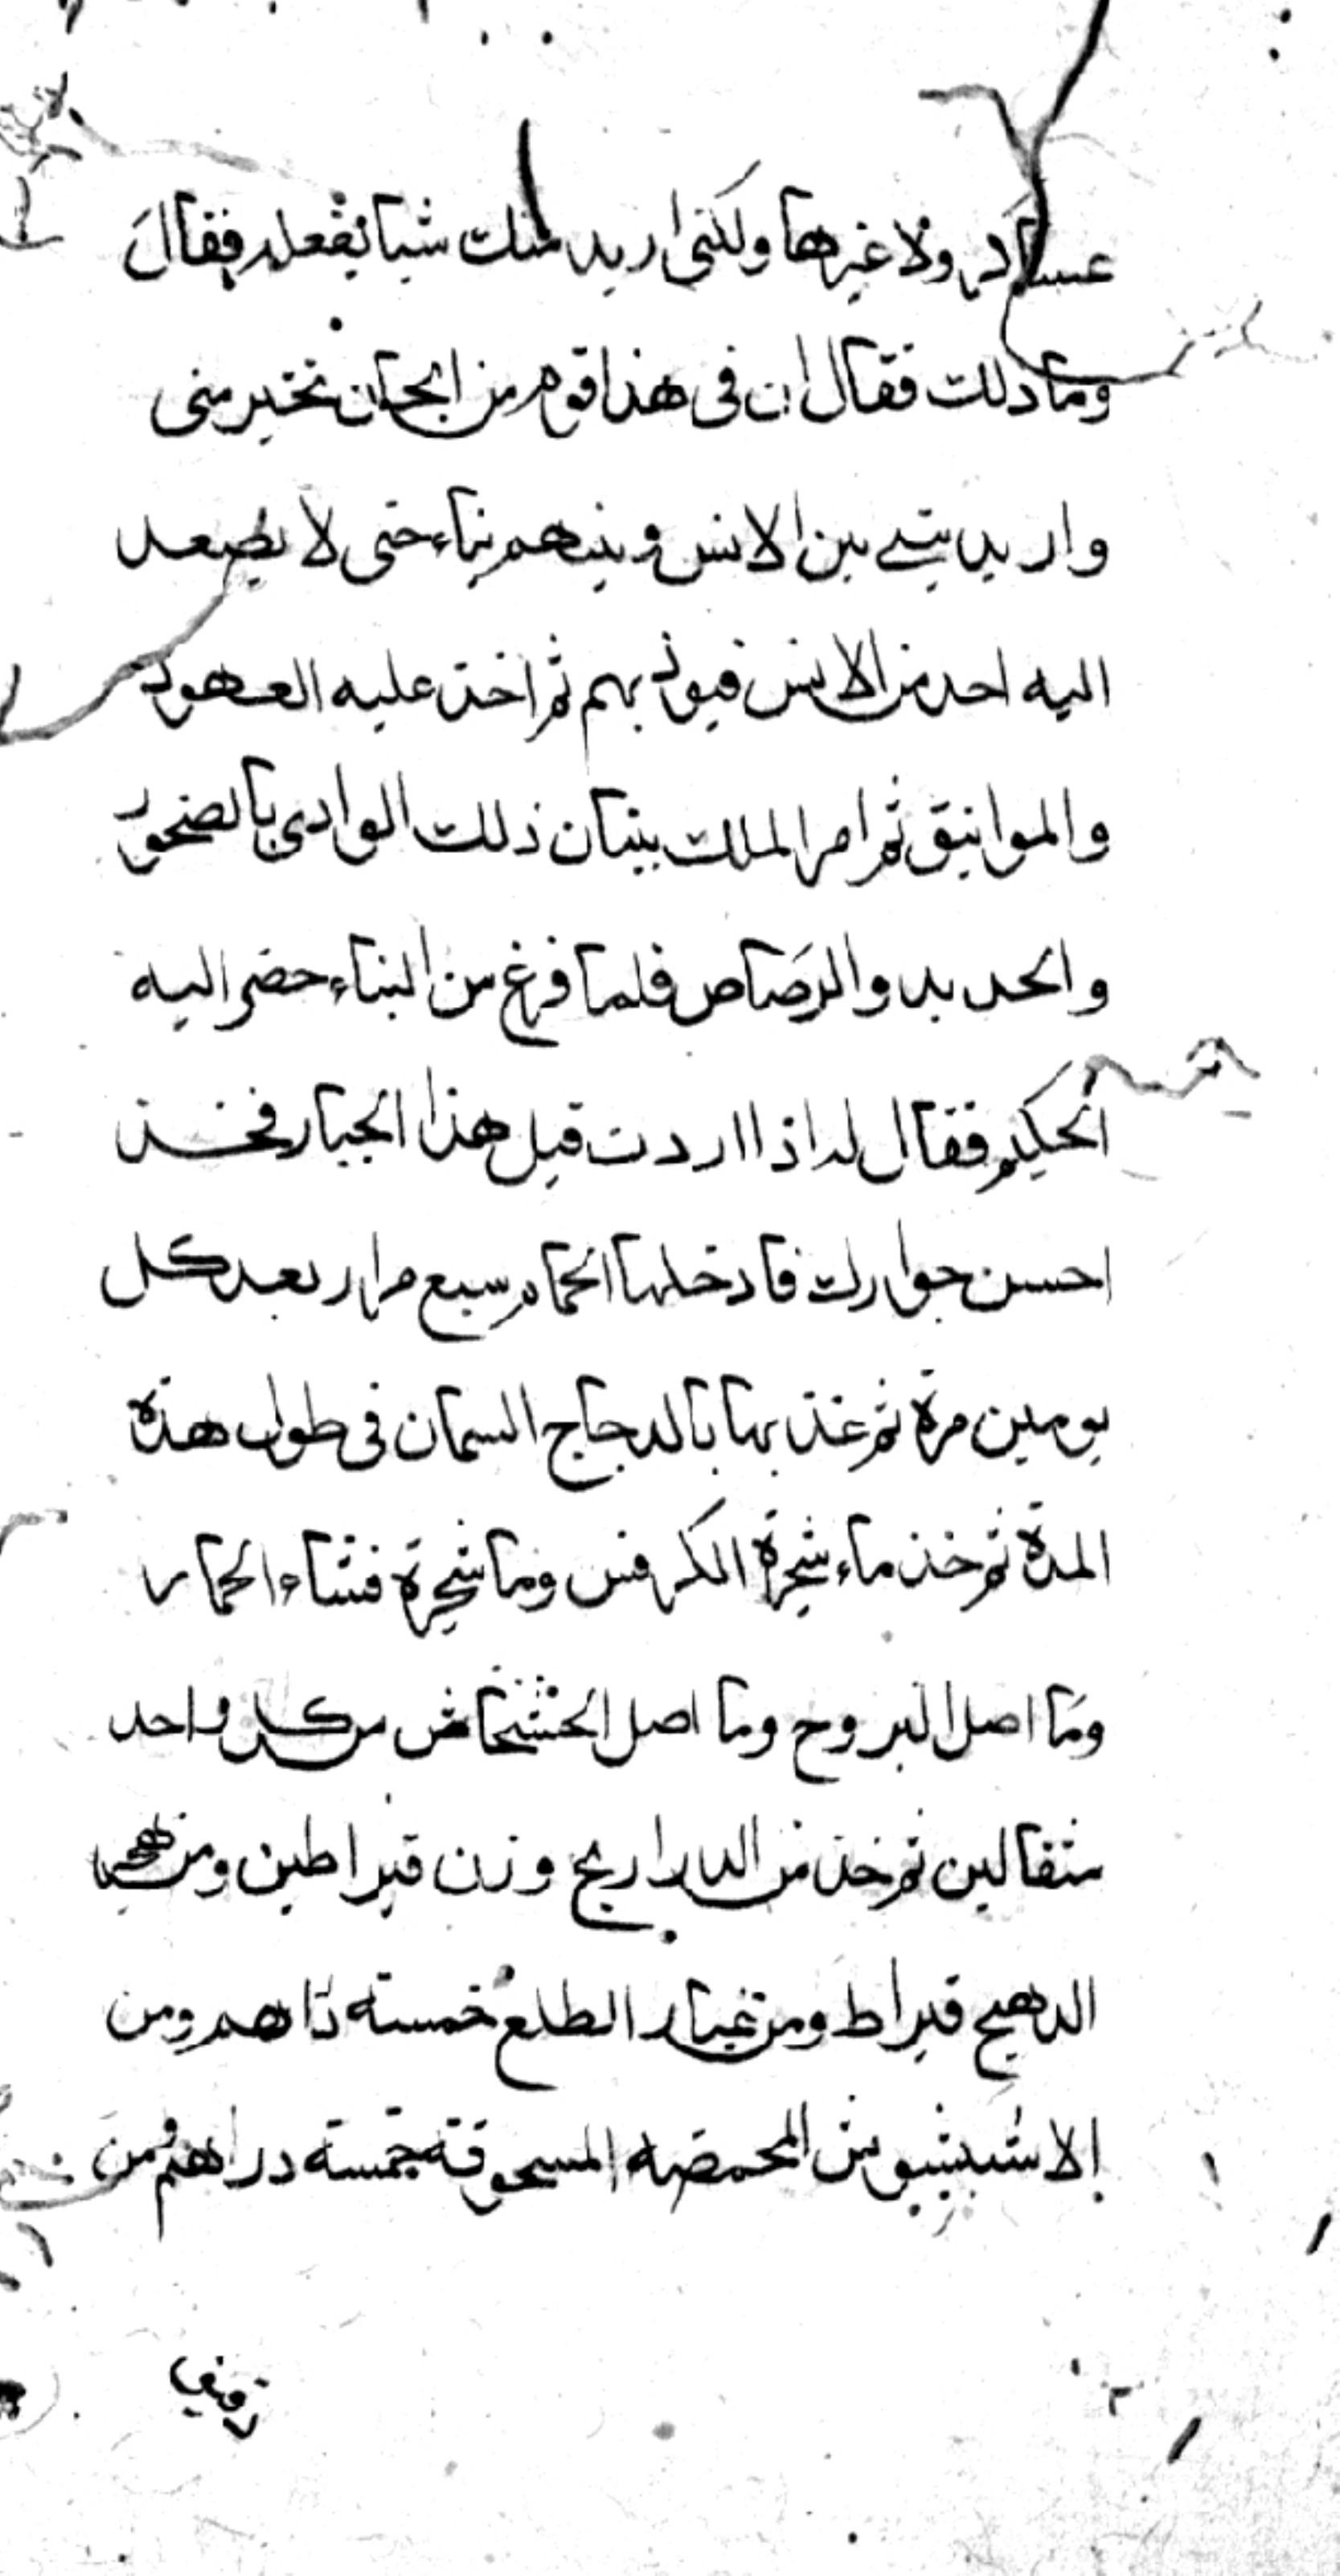 عساكر ولا غيرها ولكنى اريد منك شيا تفعله فقال
وما ذلك فقال ان فى هذا قوم من الجان تخير منى
واريد بيني بين الانس وبينهم بناء حتى لا يصعد
اليه احد من الانس فيوذ بهم ثم اخذ عليه العهود
والمواثيق ثم امر الملك ببنان ذلك الوادى بالصخور
والحديد والرصاص فلما فرغ من البناء حضر اليه
الحكيم فقال له اذا اردت قبل هذا الجبار فخذ
احسن جوارك فادخلها الحمام سبع مرار بعد كل
يومين مرة ثم غذ بها بالدجاج السمان فى طول هذة
المدة ثم خذ ماء شجرة الكرفس وما شجرة قثاء الحمار
وما اصل اليروح وما اصل الخشخاش من كل واحد
مثقالين ثم خذ من الدراريح وزن قيراطين ومن
الدهيج قيراط ومن غبار الطلع خمسته دراهم ومن
المحمصه المسحوقة خمسته دراهم ومن